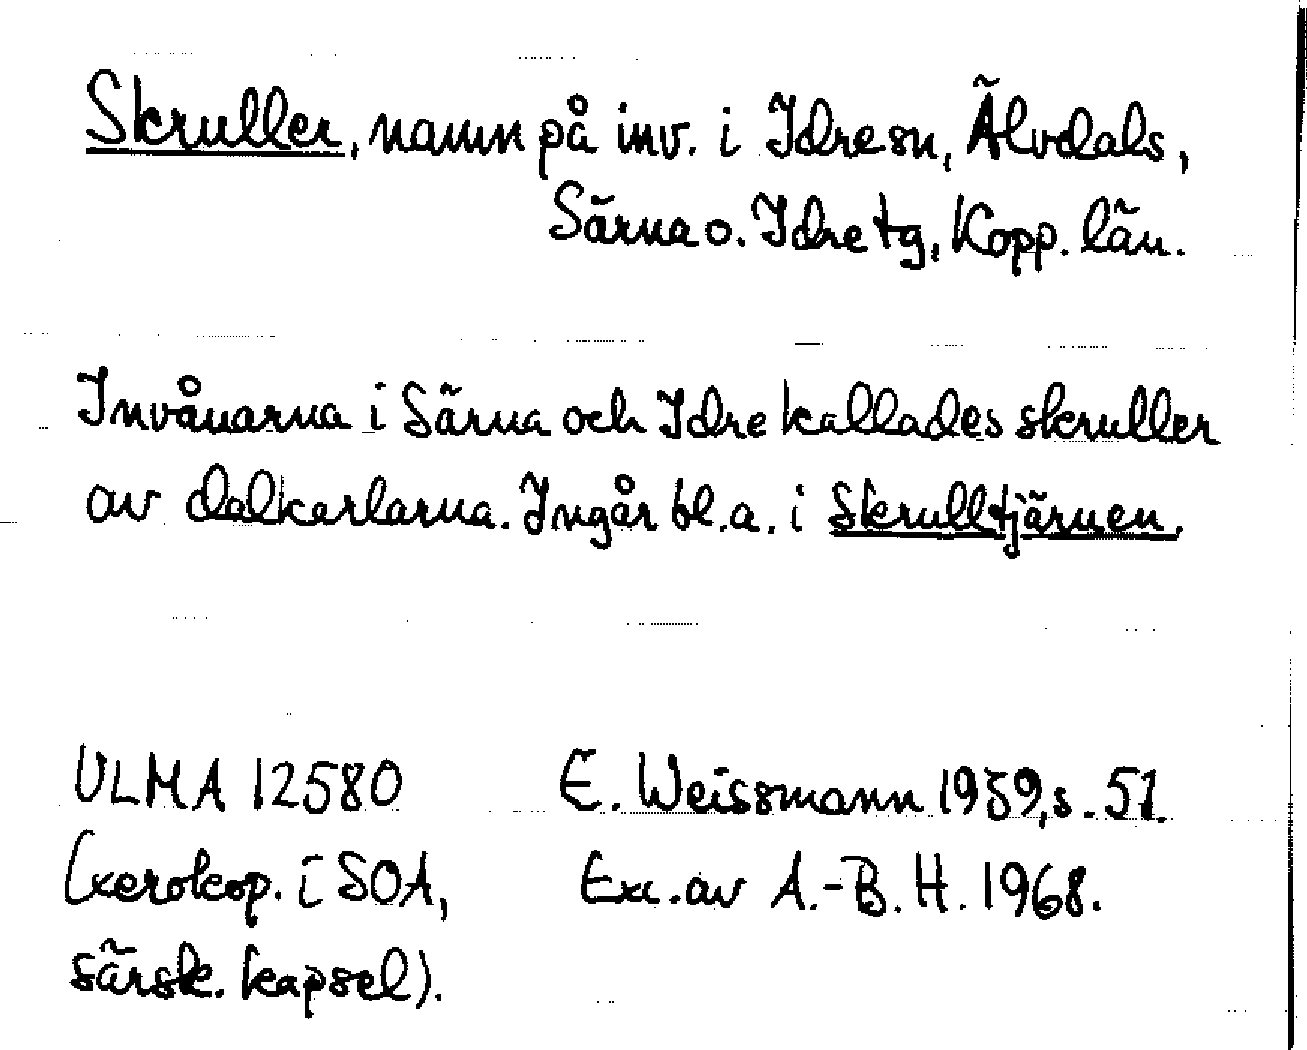 Skruller, namn på inv. i Idre sn, Älvdals,
Särna o. Idre tg, Kopp. län.
Invånarna i Särna och Idre kallades skruller
av dalkarlarna. Ingår bl.a. i Skrulltjärnen.
ULMA 12580
(xerokop. i SOA,
särsk. kapsel).
E. Weissmann 1959, s. 51.
Exc. av A.-B. H. 1968.